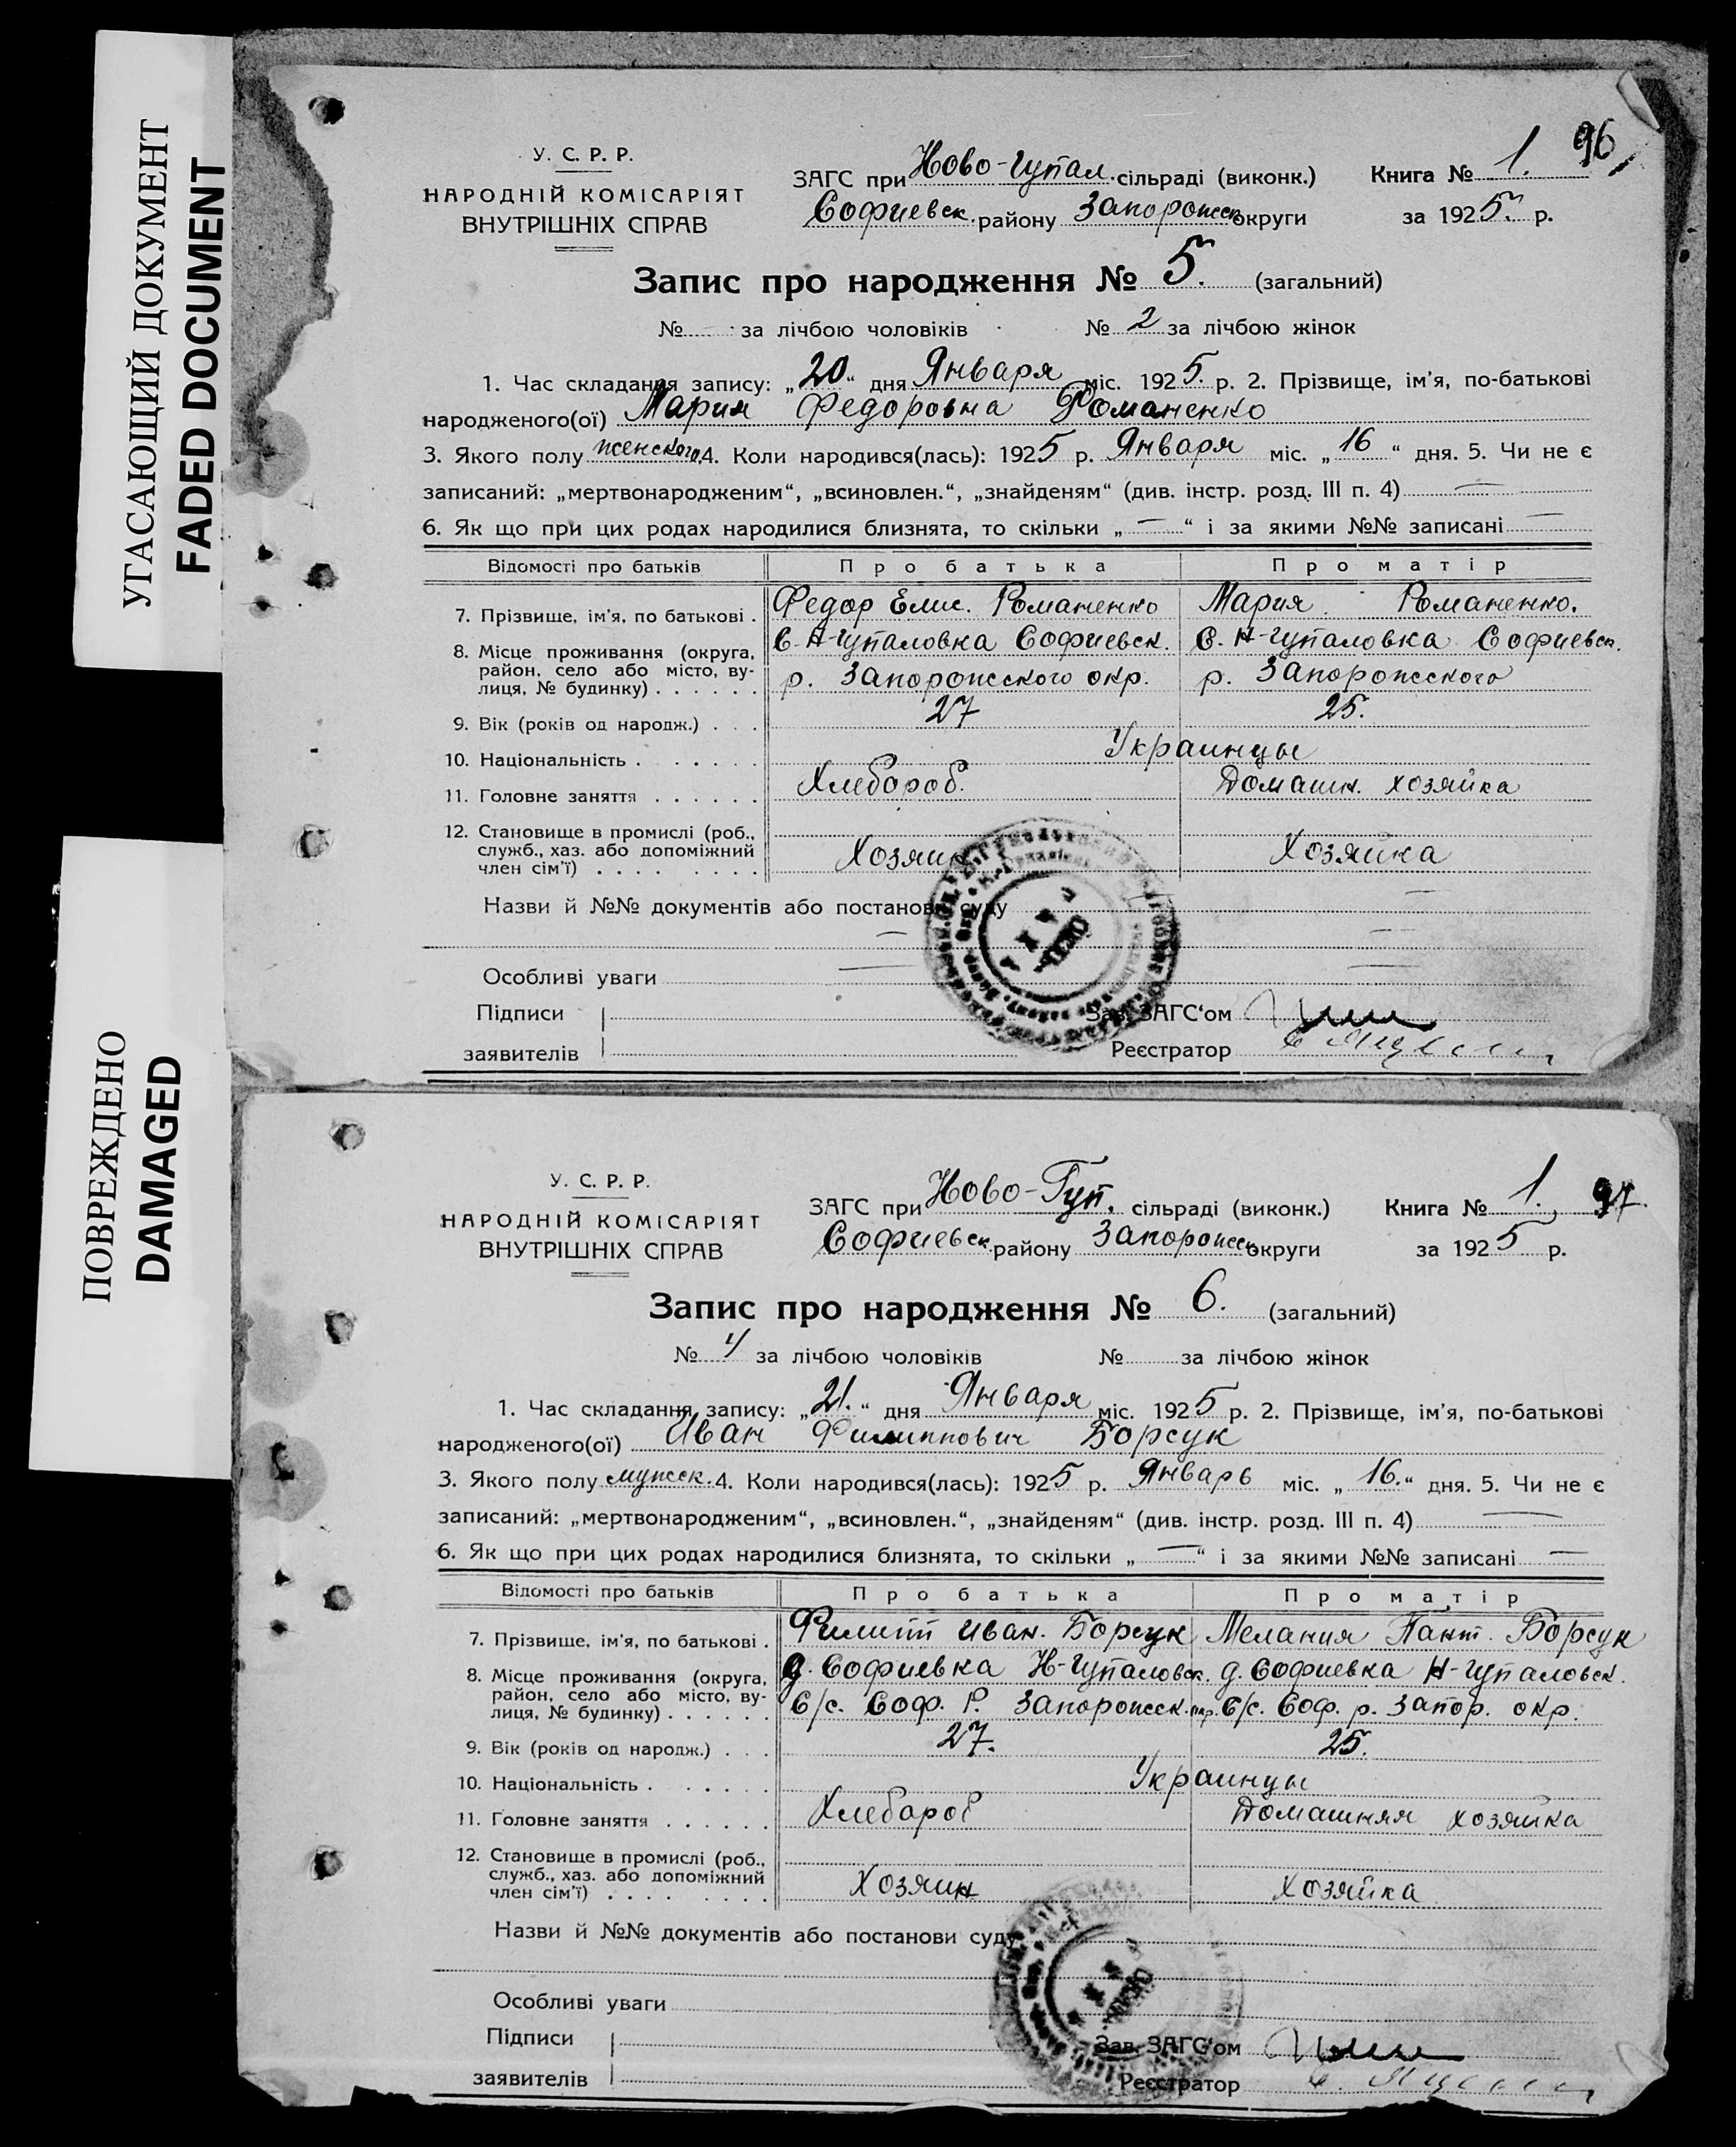 УГАСАЮЩИЙ ДОКУМЕНТ
FADED DOCUMENT
ПОВРЕЖДЕНО
DAMAGED
У. С. Р. Р.
НАРОДНІЙ КОМІСАРІЯТ
ВНУТРІШНІХ СПРАВ
ЗАГС при Ново-Гупал. сільраді (виконк.)
Софиевск. району Запорожск округи
Книга № 1. 96
за 1925. р.
Запис про народження № 5. (загальний)
№ за лічбою чоловіків № 2 за лічбою жінок
1. Час складання запису: „20“ дня Января міс. 1925. р. 2. Прізвище, ім’я, по-батькові
народженого(ої) Мария Федоровна Романенко
3. Якого полу женского 4. Коли народився(лась): 1925 р. Января міс. „16“ дня. 5. Чи не є
записаний: „мертвонародженим“, „всиновлен.“, „знайденям“ (див. інстр. розд. III п. 4) —
6. Як що при цих родах народилися близнята, то скільки „—“ і за якими №№ записані —
Відомості про батьків Про батька Про матір
7. Прізвище, ім’я, по батькові . Федор Елис. Романенко Мария Романенко.
8. Місце проживання (округа, С. Н-Гупаловка Софиевск. С. Н-Гупаловка Софиевск.
район, село або місто, ву-
лиця, № будинку) . . . . . . р. Запорожского окр. р. Запорожского
9. Вік (років од народж.) . . . 27 25.
10. Національність . . . . . . Украинцы
11. Головне заняття . . . . . . Хлебороб. Домашн. хозяйка
12. Становище в промислі (роб.,
служб., хаз. або допоміжний Хозяин Хозяйка
член сім’ї) . . . . . . . .
Назви й №№ документів або постанови суду —
— —
Особливі уваги — —
Підписи
заявителів
Зав. ЗАГС‘ом
Реєстратор
У. С. Р. Р.
НАРОДНІЙ КОМІСАРІЯТ
ВНУТРІШНІХ СПРАВ
ЗАГС при Ново-Гуп. сільраді (виконк.)
Софиевск. району Запорожск округи
Книга № 1. 97.
за 1925 р.
Запис про народження № 6. (загальний)
№ 4 за лічбою чоловіків № за лічбою жінок
1. Час складання запису: „21.“ дня Января міс. 1925 р. 2. Прізвище, ім’я, по-батькові
народженого(ої) Иван Филиппович Борсук
3. Якого полу мужск. 4. Коли народився(лась): 1925 р. Январь міс. „16.“ дня. 5. Чи не є
записаний: „мертвонародженим“, „всиновлен.“, „знайденям“ (див. інстр. розд. III п. 4) —
6. Як що при цих родах народилися близнята, то скільки „—“ і за якими №№ записані —
Відомості про батьків Про батька Про матір
7. Прізвище, ім’я, по батькові . Филипп Иван. Борсук Мелания Пант. Борсук
8. Місце проживання (округа, д. Софиевка Н-Гупаловск. д. Софиевка Н-Гупаловск.
район, село або місто, ву-
лиця, № будинку) . . . . . . С/с. Соф. Р. Запорожск. окр. С/с. Соф. р. Запор. окр.
9. Вік (років од народж.) . . . 27. 25.
10. Національність . . . . . . Украинцы
11. Головне заняття . . . . . . Хлебороб Домашняя хозяйка
12. Становище в промислі (роб.,
служб., хаз. або допоміжний Хозяин Хозяйка
член сім’ї) . . . . . . . .
Назви й №№ документів або постанови суду
Особливі уваги
Підписи
заявителів
Зав. ЗАГС‘ом
Реєстратор